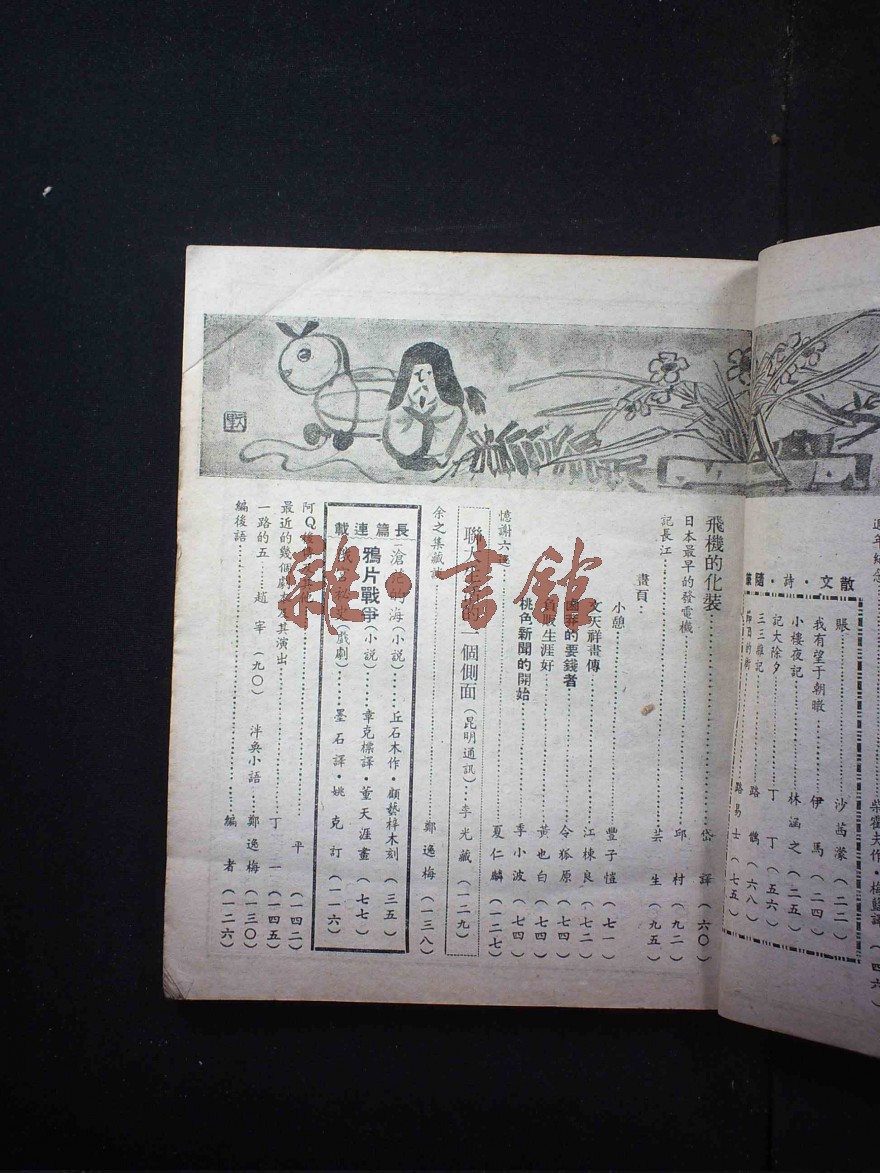 週年紀念
柴霍夫作・梅藍譯(四六)
散文・詩・隨筆
賬 沙茜濛(二二)
我有望于朝暾 伊馬(二四)
小樓夜記 林涵之(二五)
記大除夕 丁丁(五六)
三三雜記 路鵲(六八)
的街 路易士(七五)
飛機的化裝 岱譯(六〇)
日本最早的發電機 邱村(九二)
記長江 芸生(九五)
畫頁:
小憩 豐子愷(七一)
文天祥畫傳 江棟良(七二)
的要錢者 令狐原(七四)
販生涯好 黃也白(七四)
桃色新聞的開始 季小波(七四)
憶謝六逸 夏仁麟(一二七)
聯大生活的一個側面(昆明通訊) 李光藏(一二九)
余之集藏 鄭逸梅(一三八)
長篇連載
滄茫的海(小說) 丘石木作・顧藝梓木刻(三五)
鴉片戰爭(小說) 章克標譯・董天涯畫(七七)
(戲劇) 墨石譯・姚克訂(一一六)
阿Q 平(一四二)
最近的幾個劇本及其演出 丁一(一四五)
一路的五 趙宰(九〇) 泮奐小語 鄭逸梅(一三〇)
編後語 編者(一二六)
雜・書館